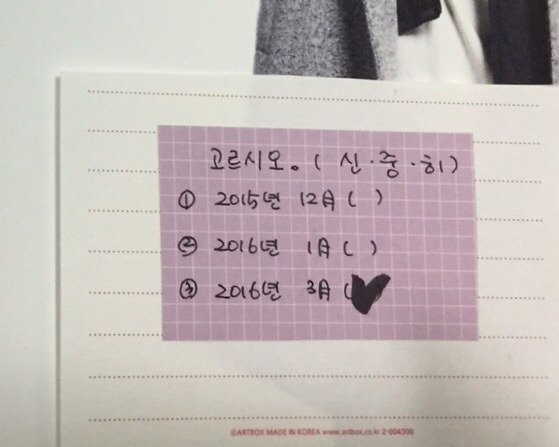 고르시오. ( 신·중·히)
① 2015년 12月 ( )
② 2016년 1月 ( )
③ 2016년 3月 (♥
©ARTBOX MADE IN KOREA www.artbox.co.kr 2-004300